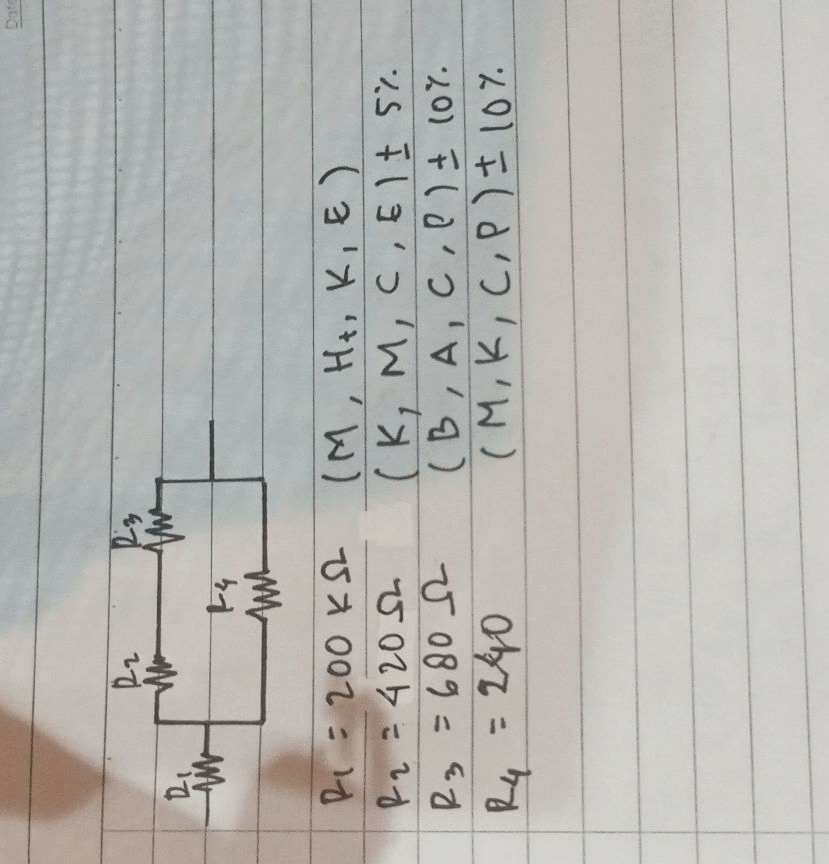 Date
R1
R2
R3
R4
R1 = 200 KΩ (M, Ht, K, E)
R2 = 420 Ω (K, M, C, E) ± 5%
R3 = 680 Ω (B, A, C, P) ± 10%
R4 = 240 (M, K, C, P) ± 10%